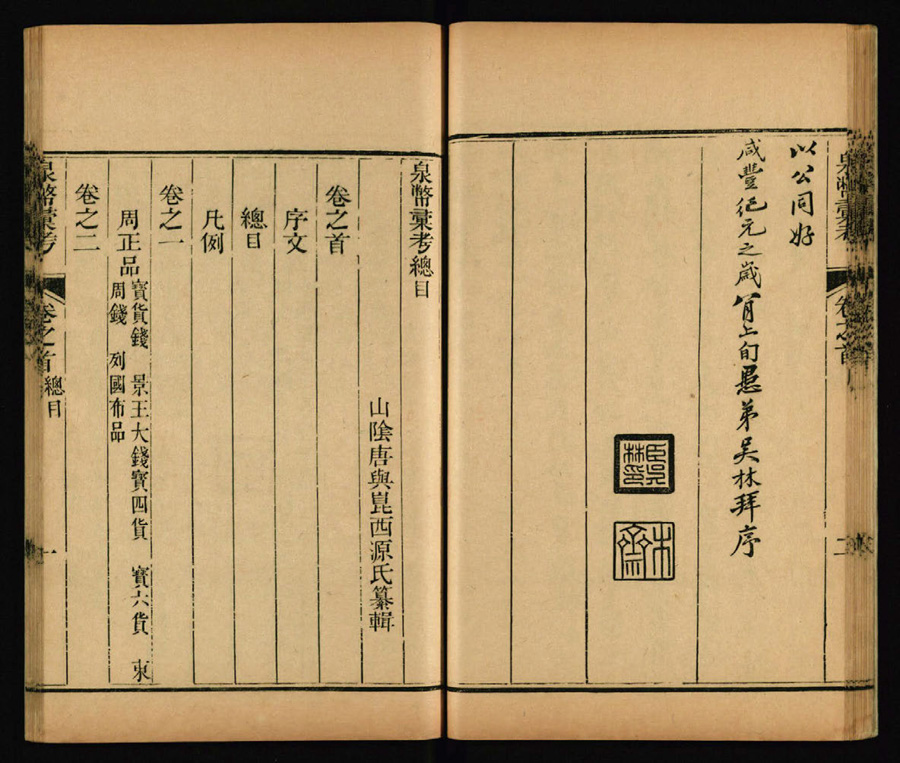 泉幣彙考
卷之首
二
以公同好
咸豐紀元之歲
上旬愚弟吳林拜序
臣吳
林印
木
齋
泉幣彙考總目
山陰唐與崑西源氏纂輯
卷之首
序文
總目
凡例
卷之一
周正品
寶貨錢 景王大錢寶四貨 寶六貨 東
周錢 列國布品
卷之二
泉幣彙考
卷之首
總目
一